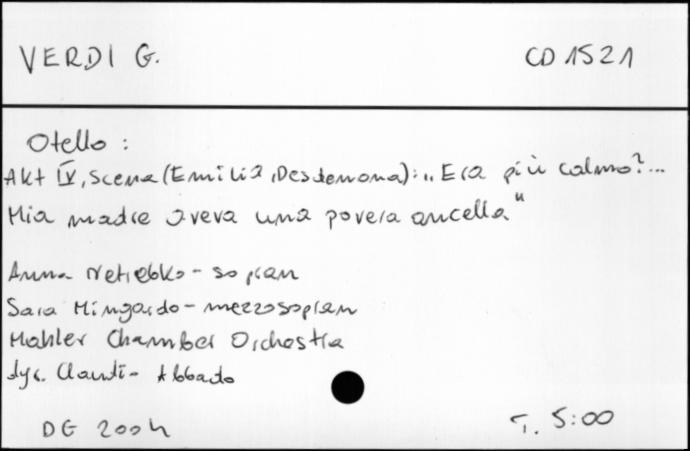 VERDI G. CD 1521
Otello :
Akt IV, Scena (Emilia, Desdemona): „Era più calmo?...
Mia madre aveva una povera ancella"
Anna Netrebko - sopran
Sara Mingardo - mezzosopran
Mahler Chamber Orchestra
dyr. Claudio Abbado
DG 2004 T. 5:00